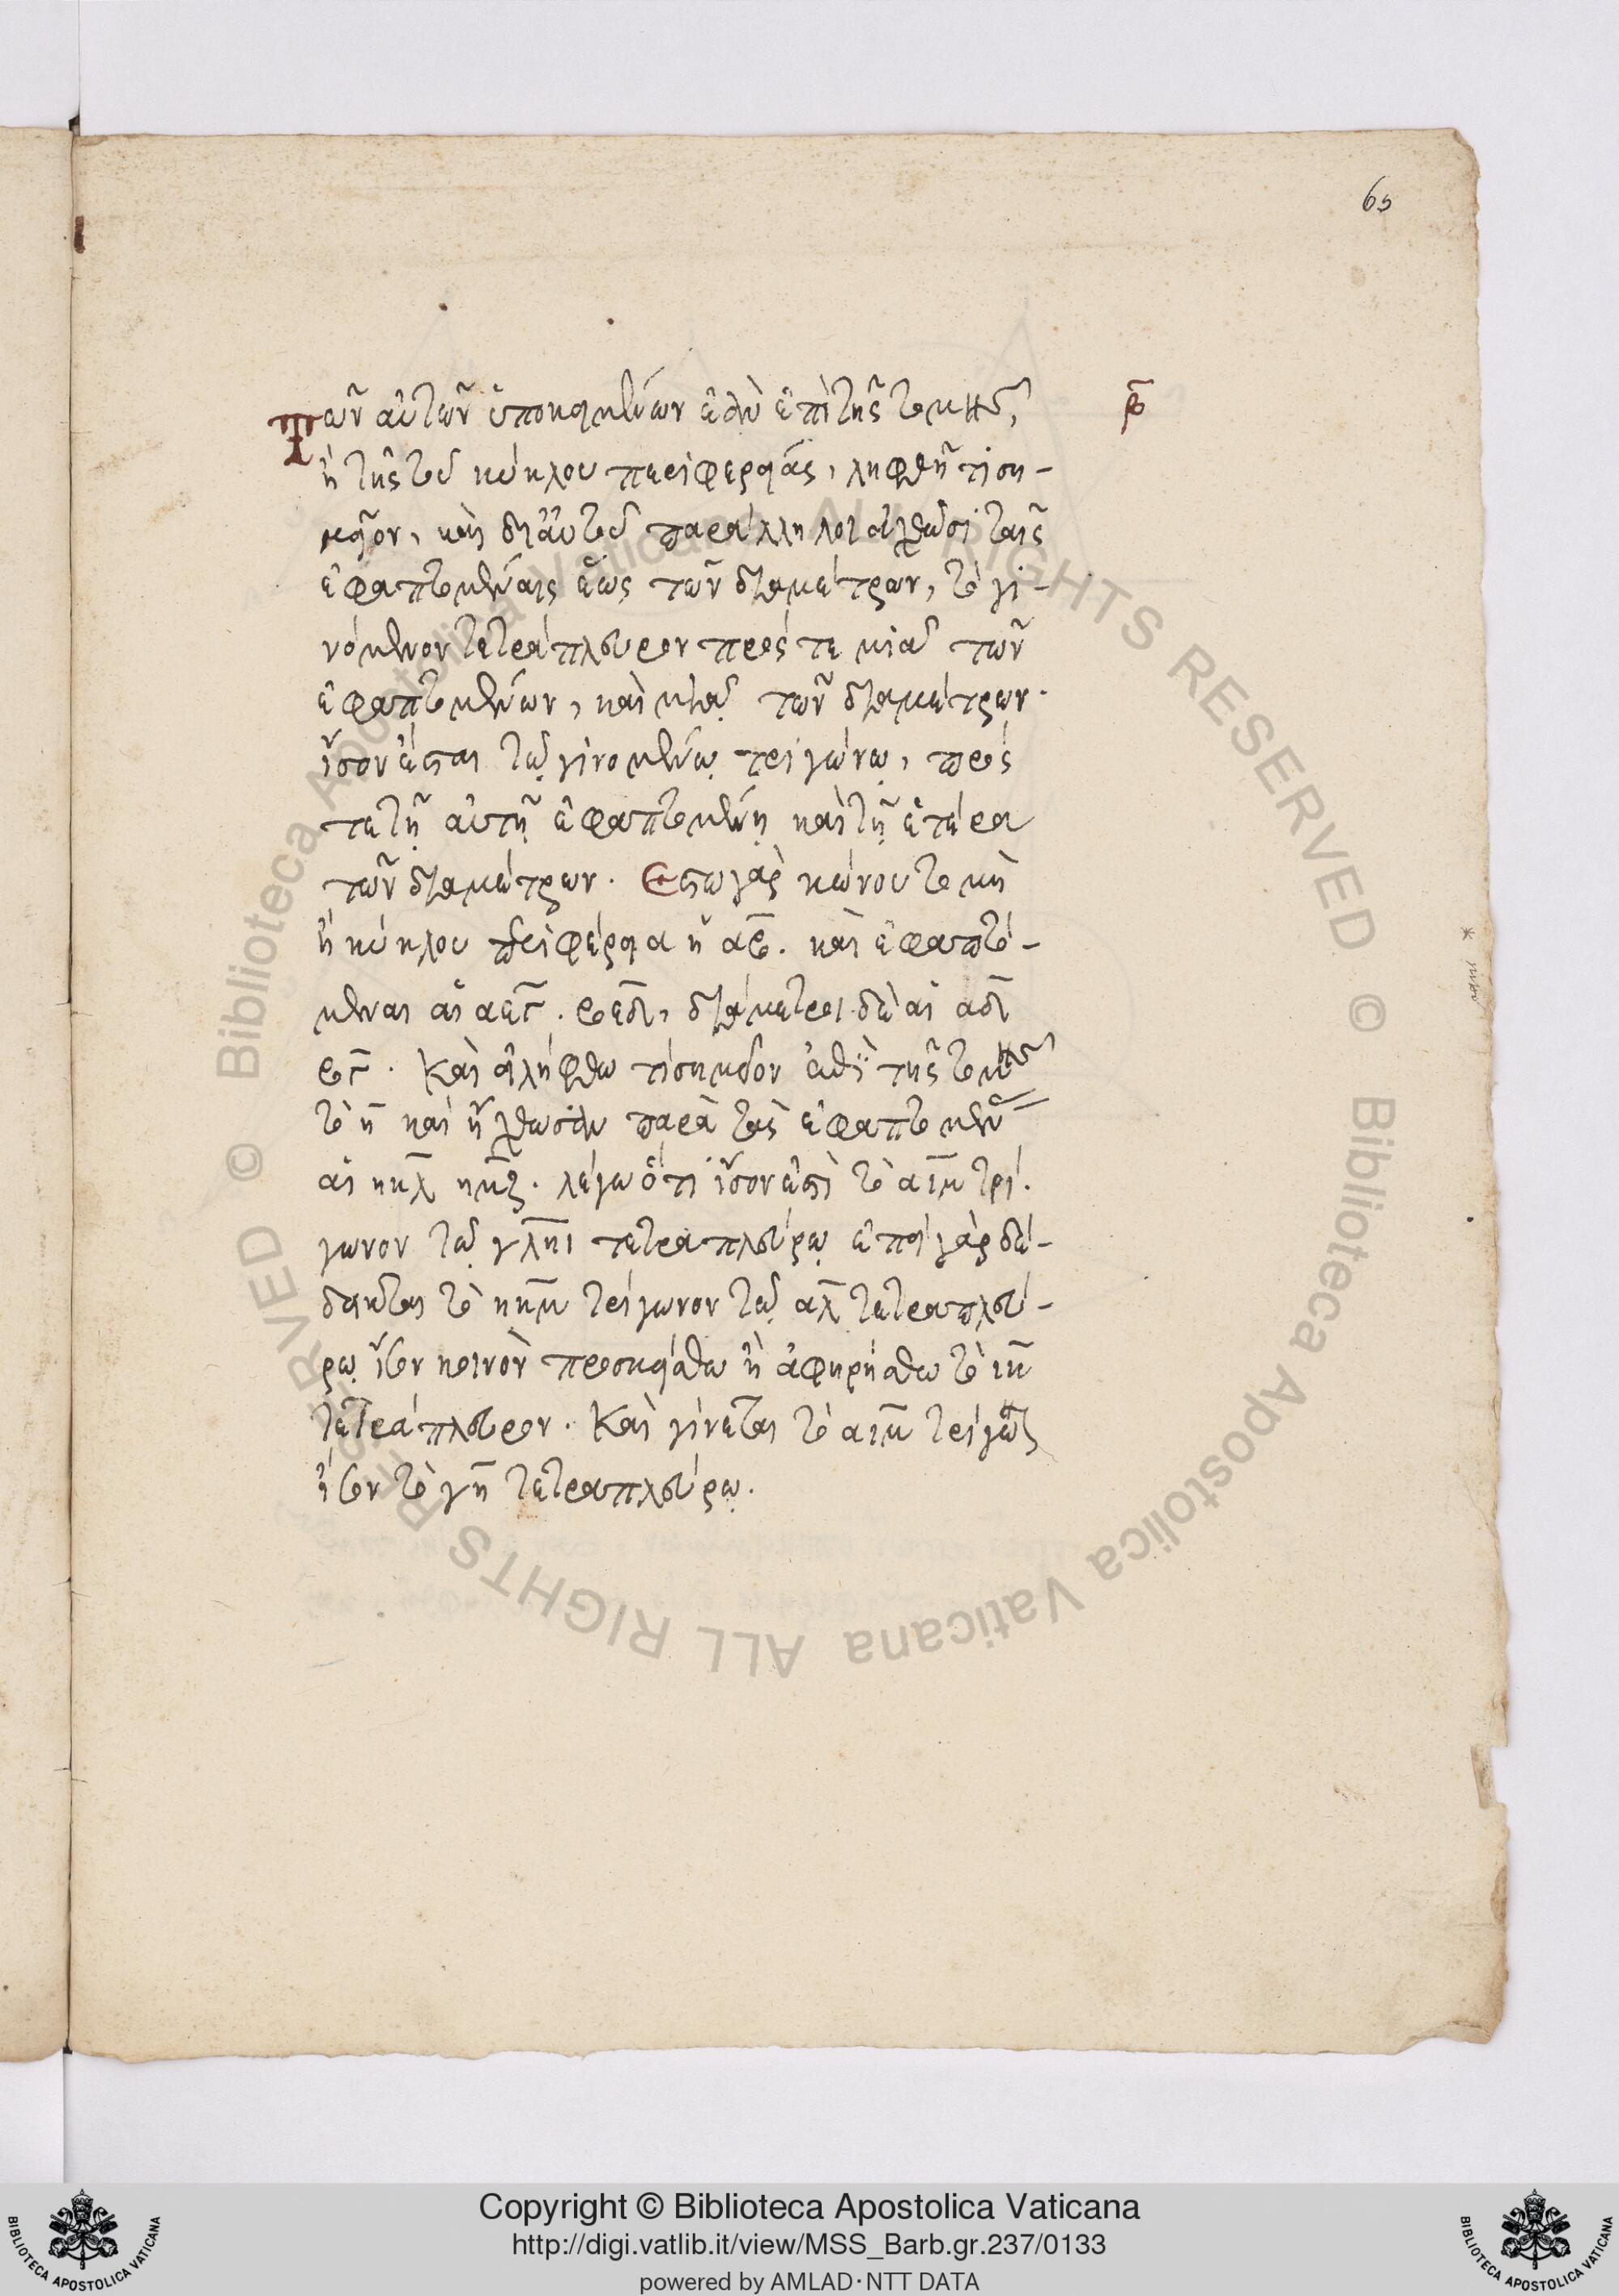 65
Τῶν αὐτῶν ὑποκειμένων ἐὰν ἐπὶ τῆς τομῆς,
β
ἢ τῆς τοῦ κύκλου περιφερείας, ληφθῇ τι ση-
μεῖον, καὶ δι' αὐτοῦ παράλληλοι ἀχθῶσι ταῖς
ἐφαπτομέναις ἕως τῶν διαμέτρων, τὸ γι-
νόμενον τετράπλευρον πρός τε μιᾷ τῶν
ἐφαπτομένων, καὶ μιᾷ τῶν διαμέτρων.
ἴσον ἔσται τῷ γινομένῳ τριγώνῳ, πρός
τε τῇ αὐτῇ ἐφαπτομένῃ καὶ τῇ ἑτέρα
τῶν διαμέτρων. Ἔστω γὰρ κώνου τομὴ
ἢ κύκλου περιφέρεια ἡ αβ. καὶ ἐφαπτό-
μεναι αἱ αεγ. βεδ, διάμετροι δὲ αἱ αδ
βγ. Καὶ εἰλήφθω τι σημεῖον ἐπὶ τῆς τομῆς
τὸ η καὶ ἤχθωσαν παρὰ τὰς ἐφαπτομένας
αἱ ηκλ ημζ. λέγω ὅτι ἴσον ἐστὶ τὸ αιμ τρί.
γωνον τῷ γληι τετραπλεύρῳ ἐπεὶ γὰρ δέ-
δεικται τὸ ηκμ τρίγωνον τῷ αλ τετραπλεύ-
ρῳ ἴσον κοινὸν προσκείσθω ἢ ἀφηρήσθω τὸ ικ
τετράπλευρον. Καὶ γίνεται τὸ αιμ τρίγωνον
ἴσον τὸ γη τετραπλεύρῳ.
Copyright © Biblioteca Apostolica Vaticana
http://digi.vatlib.it/view/MSS_Barb.gr.237/0133
powered by AMLAD·NTT DATA
BIBLIOTECA APOSTOLICA VATICANA
BIBLIOTECA APOSTOLICA VATICANA
© Biblioteca Apostolica Vaticana ALL RIGHTS RESERVED
© Biblioteca Apostolica Vaticana ALL RIGHTS RESERVED